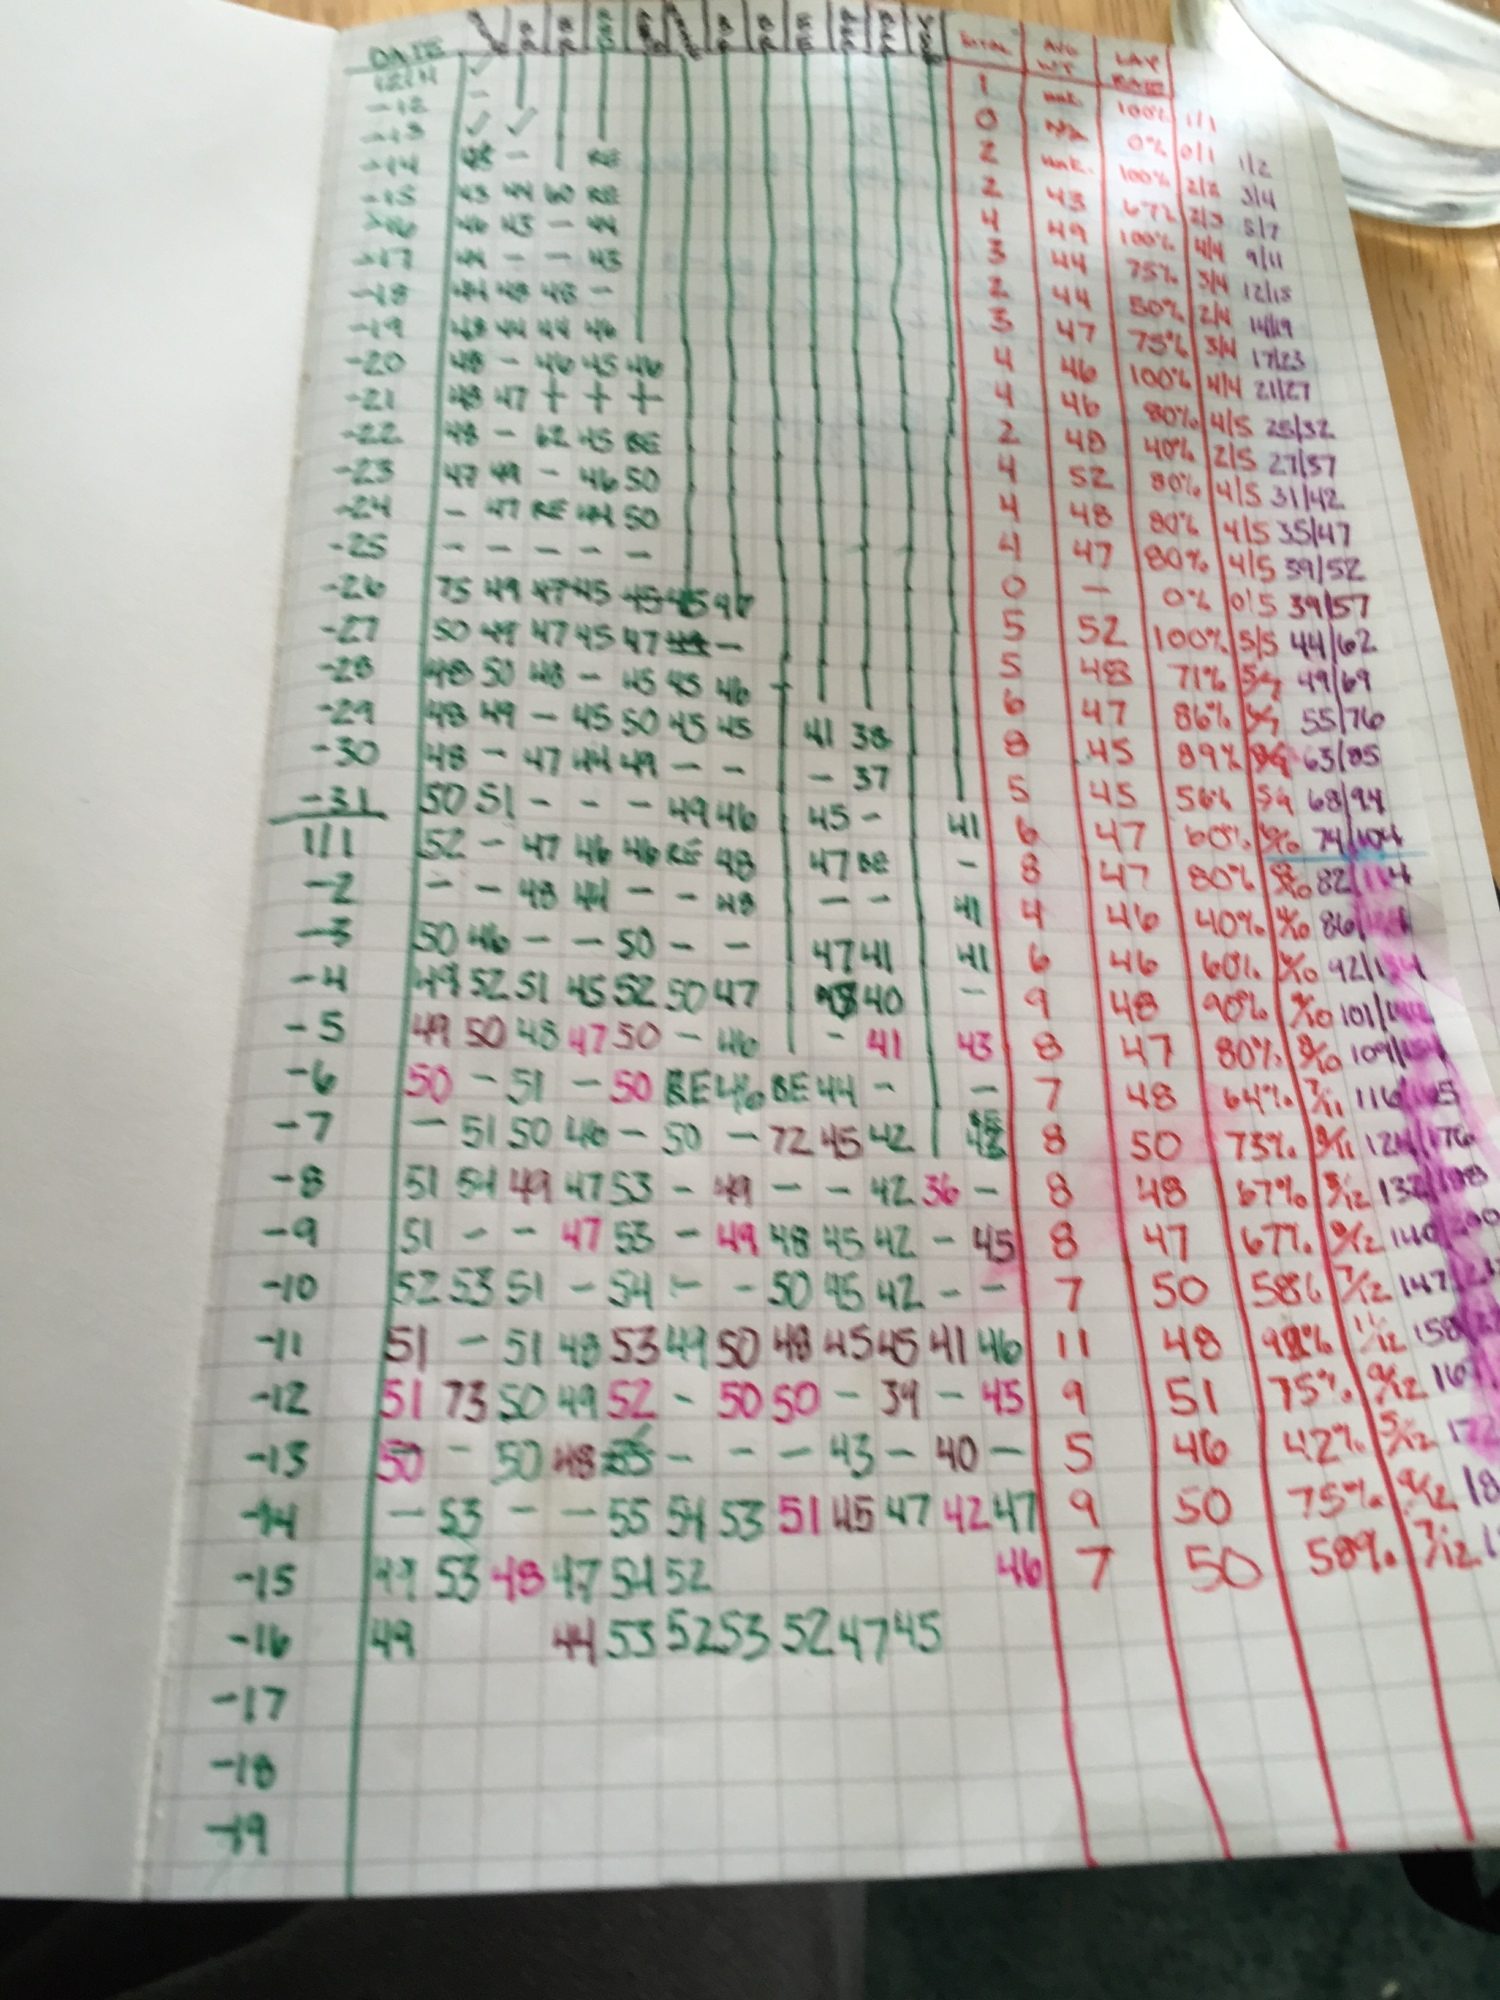 DATE TOTAL AVG WT LAY RATE
12/11 ✓ 1 unk. 100% 1/1
-12 - 0 n/a 0% 0/1 1/2
-13 ✓ ✓ 2 unk. 100% 2/2 3/4
-14 48 - RE 2 43 67% 2/3 5/7
-15 43 44 60 RE 4 49 100% 4/4 9/11
-16 46 43 - 44 3 44 75% 3/4 12/15
-17 44 - - 43 2 44 50% 2/4 14/19
-18 44 48 48 - 3 47 75% 3/4 17/23
-19 48 44 44 46 4 46 100% 4/4 21/27
-20 48 - 46 45 46 4 46 80% 4/5 25/32
-21 48 47 + + + 2 48 40% 2/5 27/37
-22 48 - 62 45 BE 4 52 80% 4/5 31/42
-23 47 49 - 46 50 4 48 80% 4/5 35/47
-24 - 47 RE 44 50 4 47 80% 4/5 39/52
-25 - - - - - 0 - 0% 0/5 39/57
-26 75 49 47 45 45 5 52 100% 5/5 44/62
-27 50 49 47 45 47 - 5 48 71% 5/7 49/69
-28 48 50 48 - 45 45 46 6 47 86% 6/7 55/76
-29 48 49 - 45 50 45 45 41 38 8 45 89% 8/9 63/85
-30 48 - 47 44 49 - - - 37 5 45 56% 5/9 68/94
-31 50 51 - - - 49 46 45 - 41 6 47 60% 6/10 74/104
1/1 52 - 47 46 46 RE 48 47 BE - 8 47 80% 8/10 82/114
-2 - - 48 44 - - 48 - - 41 4 46 40% 4/10 86/
-3 50 46 - - 50 - - 47 41 41 6 46 60% 6/10 92/
-4 49 52 51 45 52 50 47 40 - 9 48 90% 9/10 101/
-5 49 50 48 47 50 - 46 - 41 43 8 47 80% 8/10 109/
-6 50 - 51 - 50 BE 46 BE 44 - - 7 48 64% 7/11 116/
-7 - 51 50 46 - 50 - 72 45 42 8 50 73% 8/11 124/176
-8 51 54 49 47 53 - 49 - - 42 36 - 8 48 67% 8/12 132/188
-9 51 - - 47 53 - 49 48 45 42 - 45 8 47 67% 8/12 140/200
-10 52 53 51 - 54 - - 50 45 42 - - 7 50 58% 7/12 147/
-11 51 - 51 48 53 49 50 48 45 45 41 46 11 48 92% 11/12 158/
-12 51 73 50 49 52 - 50 50 - 39 - 45 9 51 75% 9/12
-13 50 - 50 48 - - - 43 - 40 - 5 46 42% 5/12
-14 - 53 - - 55 54 53 51 45 47 42 47 9 50 75% 9/12
-15 49 53 48 47 54 52 46 7 50 58% 7/12
-16 49 44 53 52 53 52 47 45
-17
-18
-19